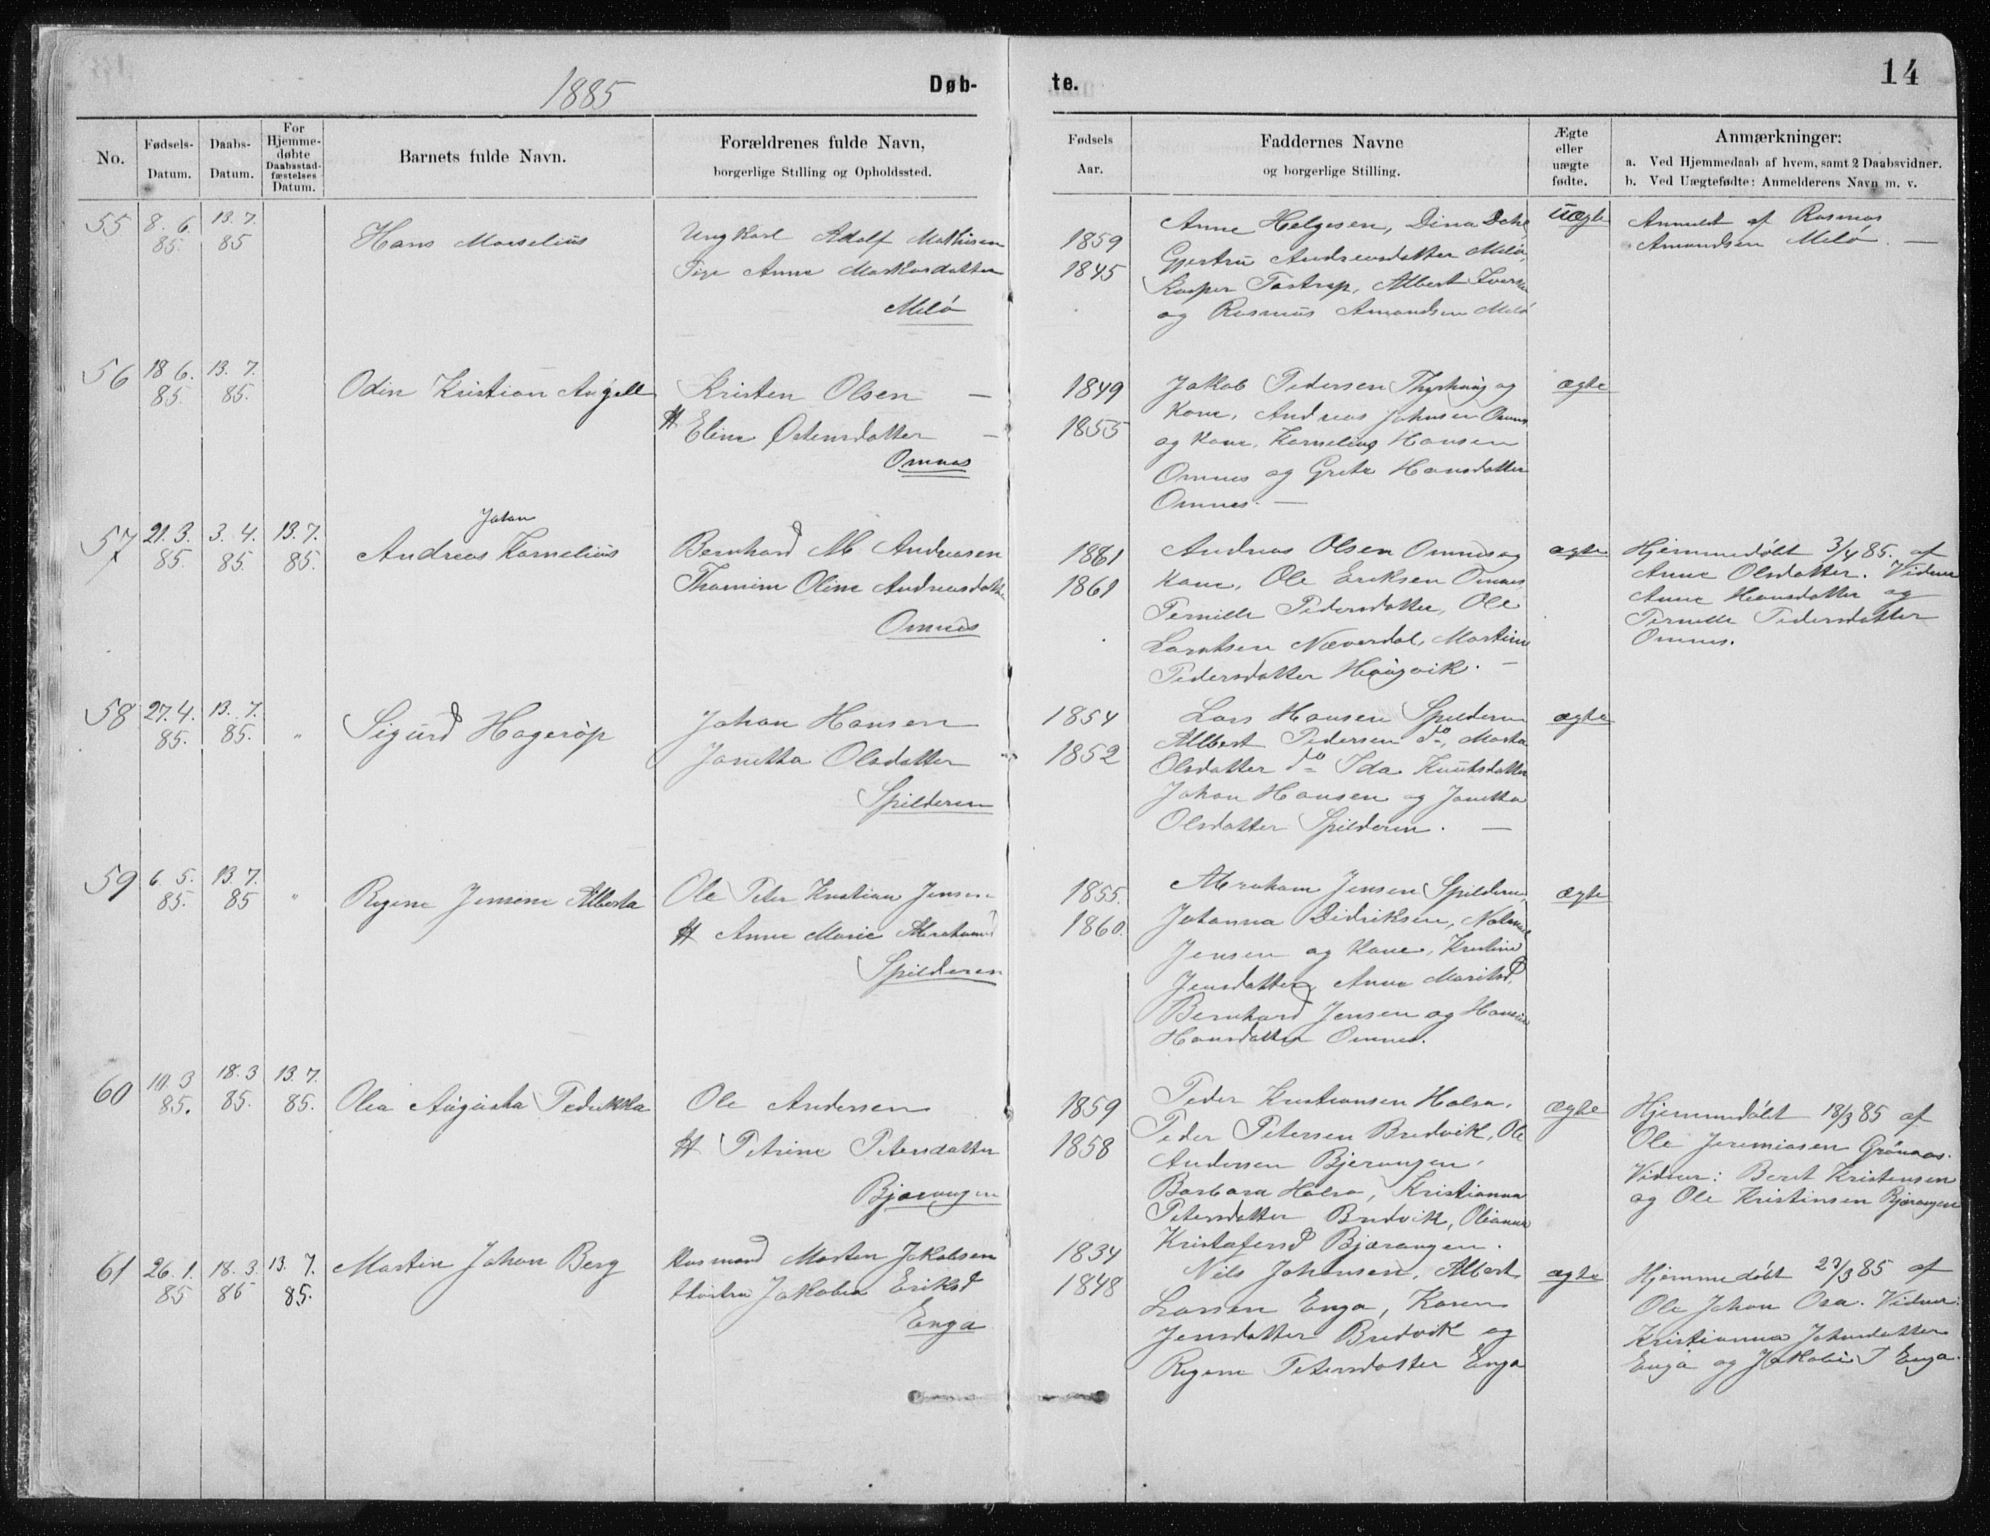 1885
Døb-
te.
14
No.
Fødsels-
Datum.
Daabs-
Datum.
For
Hjemme-
døbte
Daabsstad-
fæstelses
Datum.
Barnets fulde Navn.
Forældrenes fulde Navn,
borgerlige Stilling og Opholdssted.
Fødsels
Aar.
Faddernes Navne
og borgerlige Stilling.
Ægte
eller
uægte
fødte.
Anmærkninger:
a. Ved Hjemmedaab af hvem, samt 2 Daabsvidner.
b. Ved Uægtefødte: Anmelderens Navn m. v.
55
8. 6.
85.
13. 7.
85
Hans Moselius
Ungkarl Adolf Mathisen
Pige Anne Markusdatter
Melö
1859
1845
Anne Helgesen, Dina
Gjertru Andreasdatter Melö,
Kasper Tostrup, Albert
og Rasmus Amundsen Melö
Uægte
Anmeldt af Rasmus
Amundsen Melö. —
56
18 6.
85.
13. 7.
85.
Odin Kristian Angell
Kristen Olsen —
H Eline Østensdatter —
Omnes
1849
1855
Jakob Pedersen og
Kone, Andreas Johnsen Omnes
og Kone, Kornelius Hansen
Omnes og Grete Hansdatter
Omnes. —
ægte
57
21. 3.
85.
3. 4.
85.
13. 7.
85.
Johan
Andreas Kornelius
Bernhard M Andreasen
Thomine Oline Andreasdatter
Omnes
1861
1861
Andreas Olsen Omnes og
Kone, Ole Eriksen Omnes
Pernille Pedersdatter, Ole
Larntsen Næverdal, Martine
Pedersdatter Haugvik. —
ægte
Hjemmedøbt 3/4 85. af
Anne Olsdatter. Vidner
Anne Hansdatter og
Pernille Pedersdatter
Omnes.
58
27. 4.
85.
13. 7.
85.
"
Sigurd Hagerup
Johan Hansen
Janetta Olsdatter
Spilderen
1854
1852
Lars Hansen Spilderen
Albert Pedersen do, Marta
Olsdatter do Ida Knutsdatter
Johan Hansen og Janetta
Olsdatter Spilderen. —
ægte
59
6. 5.
85.
13. 7.
85
"
Regine Jensine Alberta
Ole Peter Kristian Jensen
H Anne Marie Abrahamsd
Spilderen
1855.
1860.
Abraham Jensen Spilderen,
Johanna Didriksen,
Jensen og Kone, Kristine
Jensdatter, Anne
Bernhard Jensen og
Hansdatter Omnes.
ægte
60
10. 3
85.
18. 3
85.
13. 7.
85.
Olea Augusta Pedrikka
Ole Andersen
H Petrine Petersdatter
Bjærangen
1859
1858
Peder Kristiansen Halsa,
Peder Petersen Bredvik, Ole
Andersen Bjerangen,
Barbara Halsa, Kristianna
Petersdatter Bredvik, Oleanna
Kristofersd Bjærangen.
ægte
Hjemmedøbt 18/3 85 af
Ole Jeremiasen Grönaas.
Vidner: Berit Kristensen
og Ole Kristinsen Bjerangen
61
26. 1.
85
18. 3
85
13. 7.
85.
Martin Johan Berg
Husmand Morten Jakobsen
Hustru Jakobia Eriksd
Enga
1834
1848
Nils Johansen, Albert
Larsen Enga, Karen
Jensdatter Bredvik og
Regine Petersdatter Enga
ægte
Hjemmedøbt /3 85 af
Ole Johan Osa. Vidner:
Kristianna Johnsdatter
Enga og Jakobia J Enga.